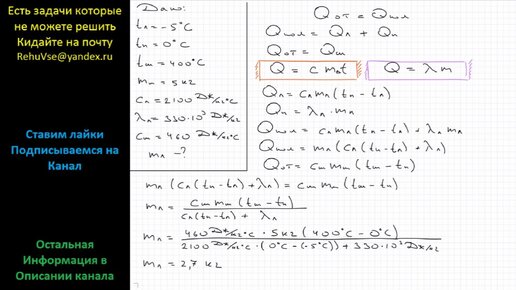 Есть задачи которые
не можете решить
Кидайте на почту
RehuVse@yandex.ru
Ставим лайки
Подписываемся на
Канал
Остальная
Информация в
Описании канала
Дано:
tл=-5°C
tп=0°C
tш=400°C
mш=5 кг
cл=2100 Дж/кг°C
λл=330·10³ Дж/кг
cш=460 Дж/кг°C
mл-?
Qот=Qпол
Qпол=Qл+Qп
Qот=Qш
Q=cmΔt
Q=λm
Qл=cлmл(tп-tл)
Qп=λл·mл
Qпол=cлmл(tп-tл)+λлmл
Qот=cшmш(tш-tп)
mл(cл(tп-tл)+λл)=cшmш(tш-tп)
mл=cшmш(tш-tп)/cл(tп-tл)+λл
mл=460 Дж/кг°C·5кг(400°C-0°C)/2100 Дж/кг°C·(0°C-(-5°C))+330·10³ Дж/кг
mл=2,7 кг